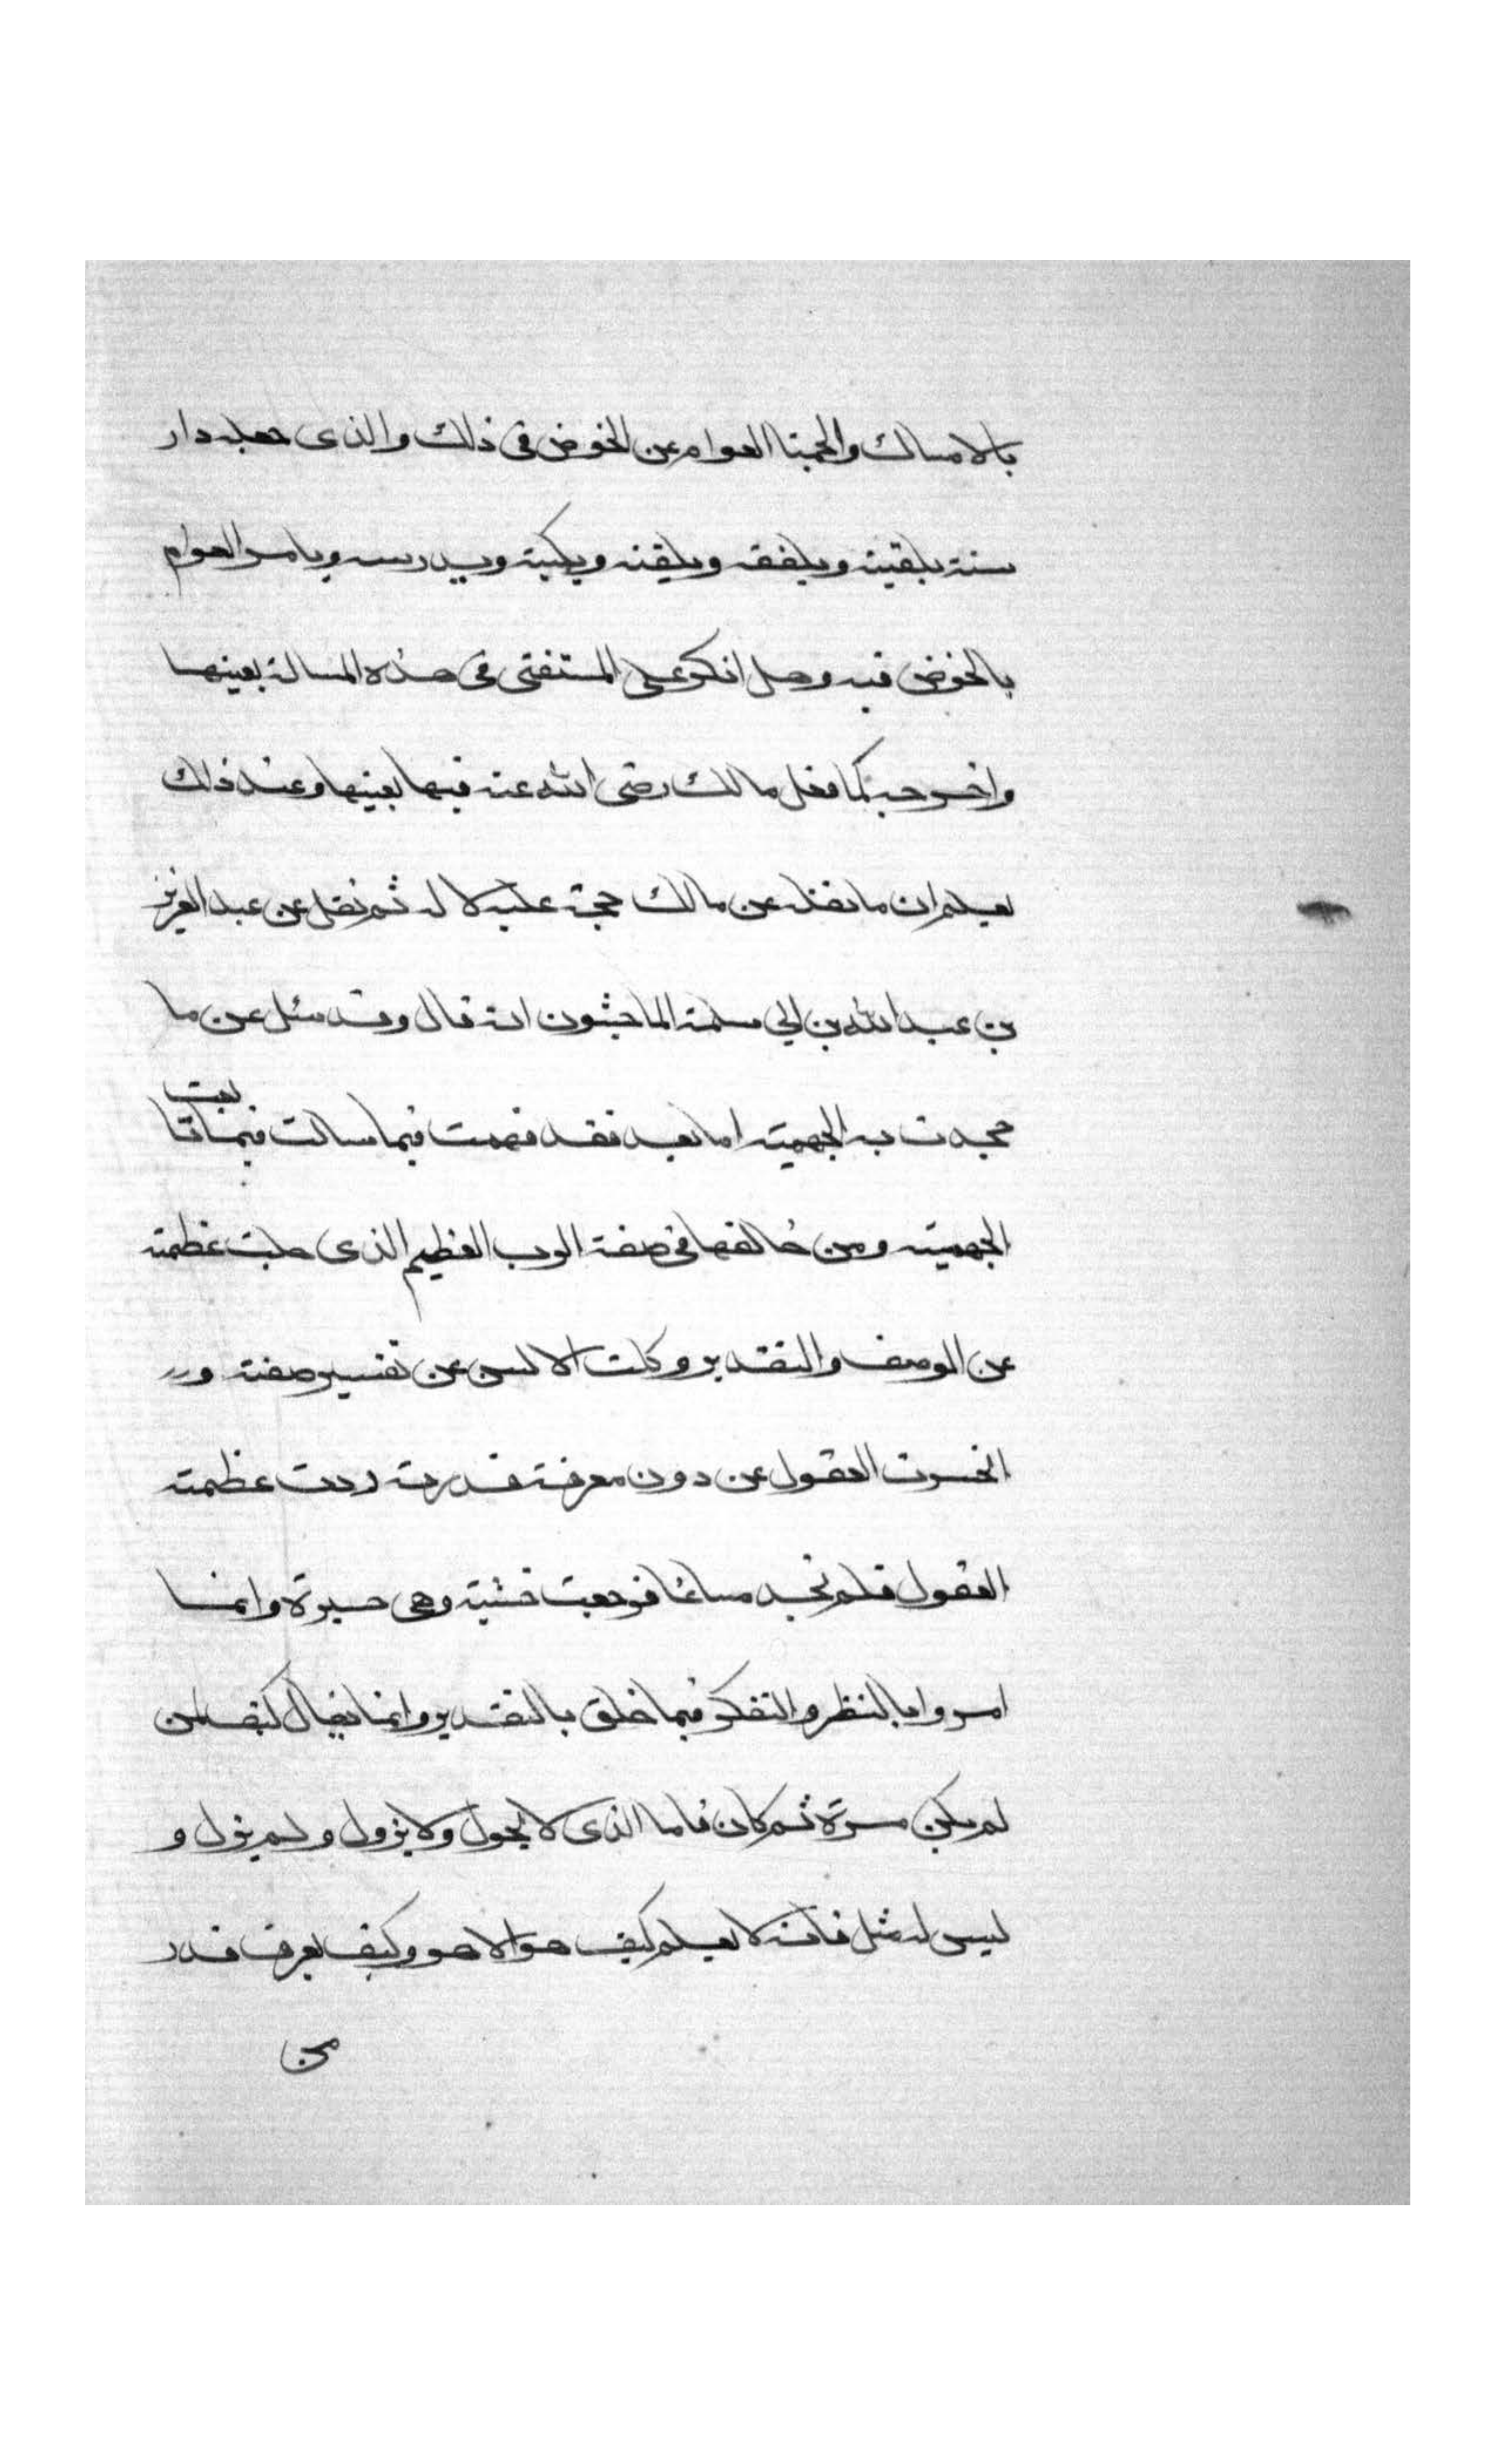 بالامساك والجمنا العوام عن الخوض في ذلك والذى جعله دار
سنه يلقيه ويلفقه ويلقنه ويكتبه ويدرسه ويامر العوام
بالخوض فيه وهل انكر على المستفتى فى هذه المسالة بعينها
واخرجه كما فعل مالك رضى الله عنه فيها بعينها وعند ذلك
يعلم ان ما نقله عن مالك حجة عليه لا له ثم نقل عن عبد العزيز
بن عبد الله بن ابي سلمة الماجشون انه قال وقد سئل عن ما
جحدت به الجهمية اما بعد فقد فهمت فيما سالت فيما تتابعت
الجهمية ومن خالفها في صفة الرب العظيم الذى جلت عظمته
عن الوصف والتقدير وكلت الالسن عن تفسير صفته و
انحسرت العقول عن دون معرفة قدرته ردت عظمته
العقول فلم تجد مساغا فرجعت خشية وهى حسيرة وانما
امروا بالنظر والتفكر فيما خلق بالتقدير وانما يقال كيف لمن
لم يكن مرة ثم كان فاما الذى لا يحول ولا يزول ولم يزل و
ليس له مثل فانه لا يعلم كيف هو الا هو وكيف يعرف قدر
من